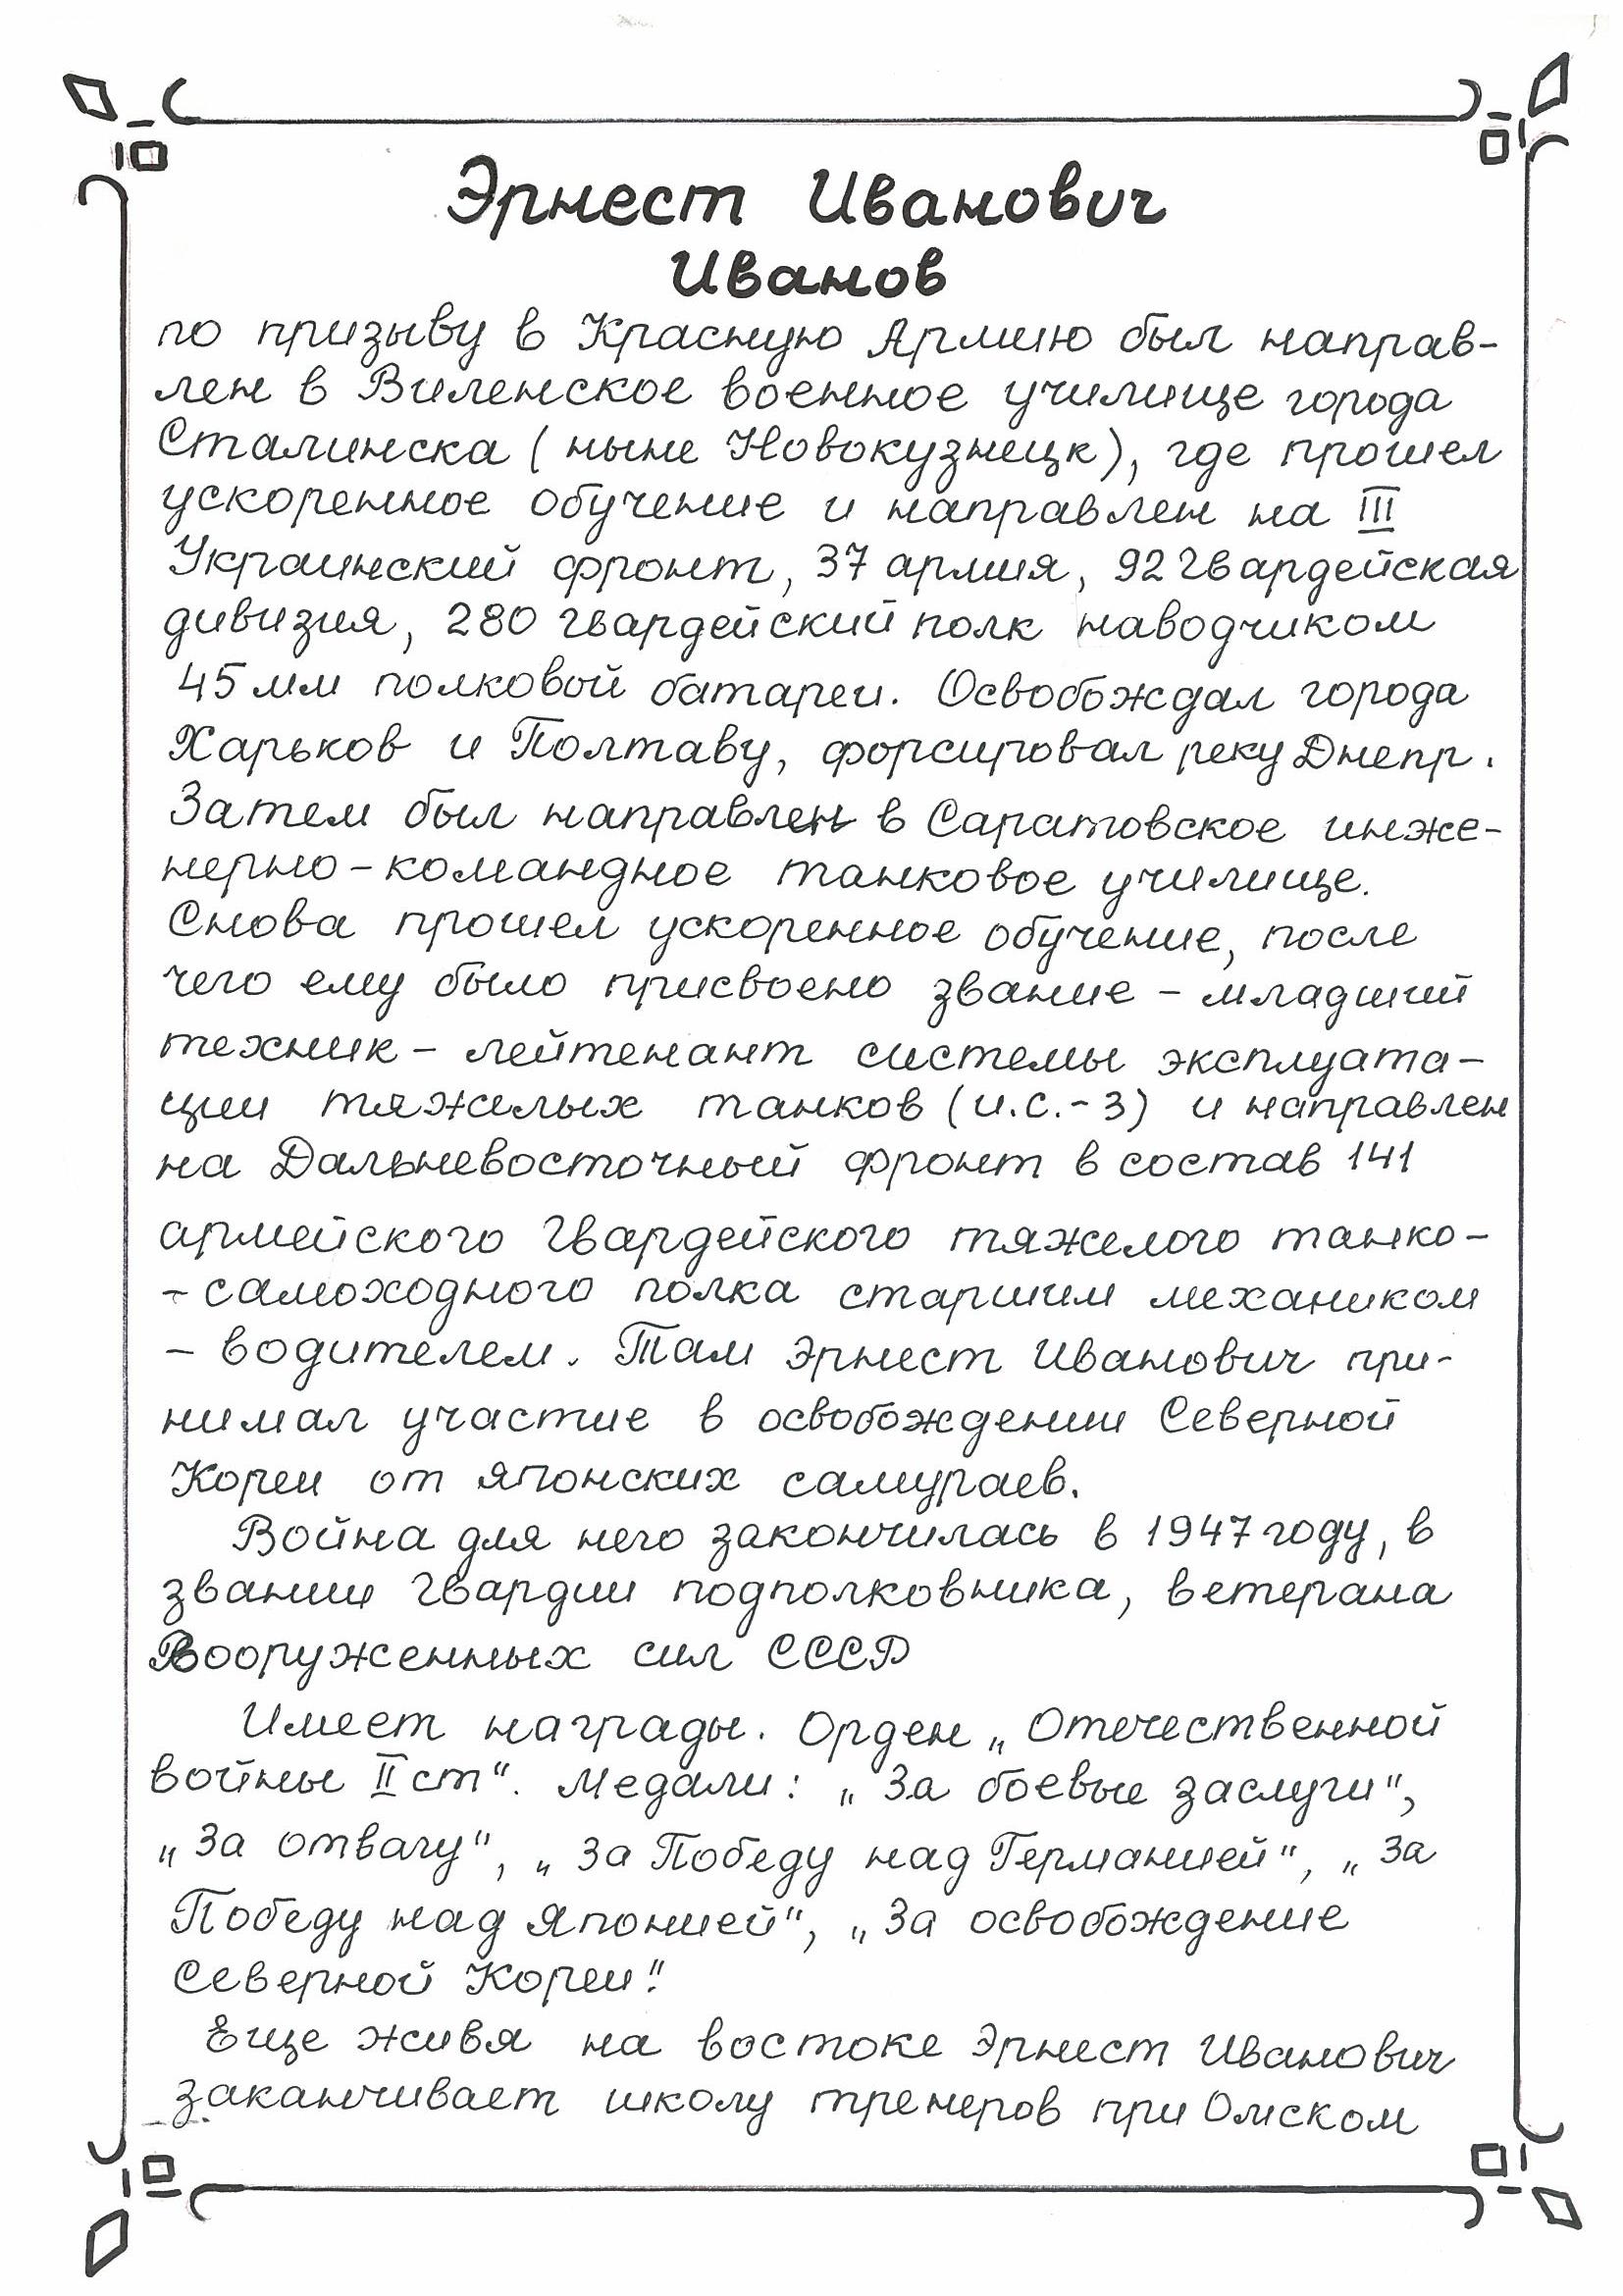 Эрнест Иванович
Иванов
по призыву в Красную Армию был направ-
лен в Виленское военное училище города
Сталинска (ныне Новокузнецк), где прошел
ускоренное обучение и направлен на III
Украинский фронт, 37 армия, 92 гвардейская
дивизия, 280 гвардейский полк наводчиком
45 мм полковой батареи. Освобождал города
Харьков и Полтаву, форсировал реку Днепр.
Затем был направлен в Саратовское инже-
нерно-командное танковое училище.
Снова прошел ускоренное обучение, после
чего ему было присвоено звание - младший
техник - лейтенант системы эксплуата-
ции тяжелых танков (и.с.-3) и направлен
на Дальневосточный фронт в состав 141
армейского гвардейского тяжелого танко-
- самоходного полка старшим механиком
- водителем. Там Эрнест Иванович при-
нимал участие в освобождении Северной
Кореи от японских самураев.
Война для него закончилась в 1947 году, в
звании гвардии подполковника, ветерана
Вооруженных сил СССР
Имеет награды. Орден „Отечественной
войны II ст“. Медали: „За боевые заслуги“,
„За отвагу“, „За Победу над Германией“, „За
Победу над Японией“, „За освобождение
Северной Кореи“.
Еще живя на востоке Эрнест Иванович
заканчивает школу тренеров при Омском